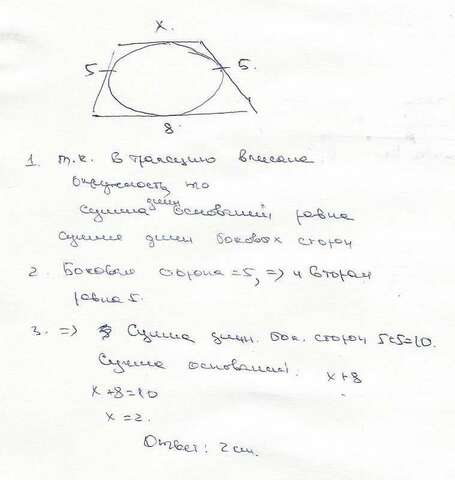 x.
5 5.
8
1. т.к. в трапецию вписана
окружность, то
длин
сумма оснований равна
сумме длин боковых сторон
2. Боковая сторона = 5, => и вторая
равна 5.
3. => Сумма длин. бок. сторон 5+5=10.
Сумма оснований: x+8
x+8=10
x=2.
Ответ: 2 см.